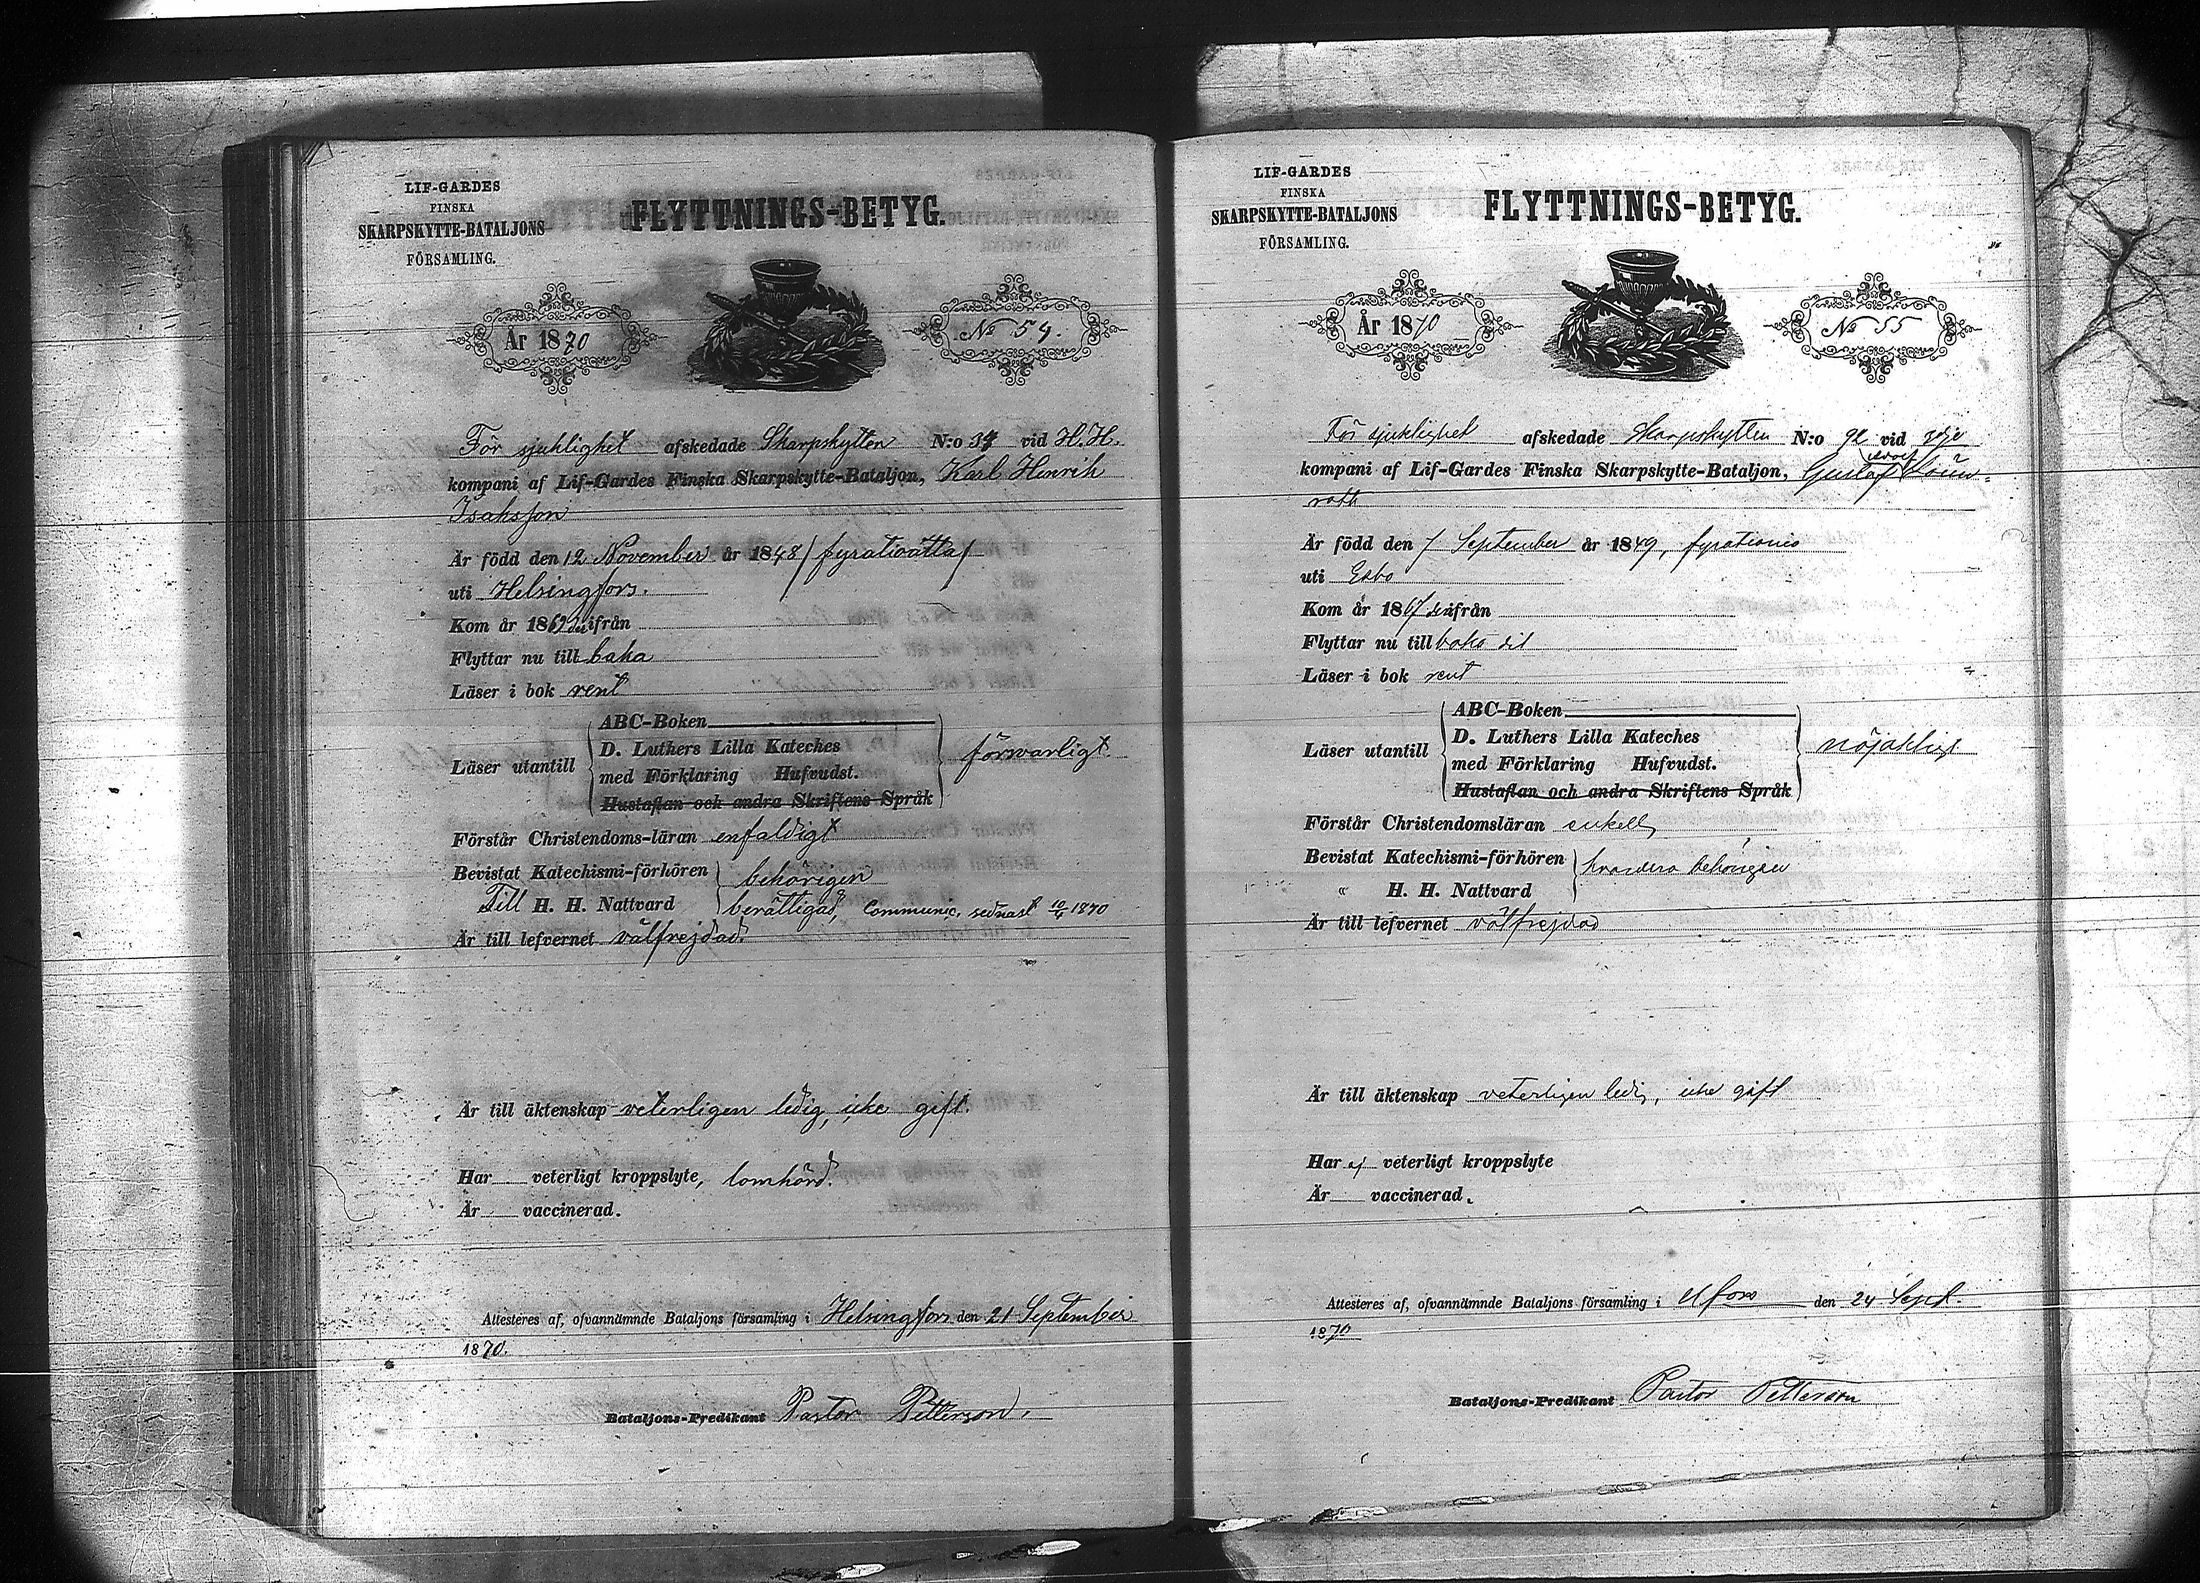 LIF-GARDES
FINSKA
SKARPSKYTTE-BATALJONS
FÖRSAMLING.
FLYTTNINGS-BETYG.
År 1870
No 54.
För sjuklighet afskedade Skarpskytten N:o 34 vid H.H.
kompani af Lif-Gardes Finska Skarpskytte-Bataljon, Karl Henrik
Isaksson
Är född den 12 November år 1848 / fyratioåtta /
uti Helsingfors.
Kom år 1869 derifrån
Flyttar nu till baka
Läser i bok rent
Läser utantill
ABC-Boken
D. Luthers Lilla Kateches
med Förklaring Hufvudst.
Hustaflan och andra Skriftens Språk
försvarligt
Förstår Christendoms-läran enfaldigt
Bevistat Katechismi-förhören behörigen
Till H. H. Nattvard berättigad, Communic. sednast 10/4 1870
Är till lefvernet välfrejdad.
Är till äktenskap veterligen ledig, icke gift.
Har veterligt kroppslyte, lomhörd.
Är vaccinerad.
Attesteres af, ofvannämnde Bataljons församling i Helsingfors den 21 September
1870.
Bataljons-Predikant Pastor Petterson.
LIF-GARDES
FINSKA
SKARPSKYTTE-BATALJONS
FÖRSAMLING.
FLYTTNINGS-BETYG.
År 1870
No 55
För sjuklighet afskedade Skarpskytten N:o 92 vid 2dje
kompani af Lif-Gardes Finska Skarpskytte-Bataljon, Gustaf Adolf
Är född den 7 September år 1849, fyrationio
uti Esbo
Kom år 1867 derifrån
Flyttar nu till baka dit
Läser i bok rent
Läser utantill
ABC-Boken
D. Luthers Lilla Kateches
med Förklaring Hufvudst.
Hustaflan och andra Skriftens Språk
nöjaktligt
Förstår Christendomsläran enkelt
Bevistat Katechismi-förhören
" H. H. Nattvard
hvardera behörigen
Är till lefvernet välfrejdad
Är till äktenskap veterligen ledig, icke gift
Har ej veterligt kroppslyte
Är vaccinerad.
Attesteres af, ofvannämnde Bataljons församling i Hfors den 24 Sept.
1870
Bataljons-Predikant Pastor Petterson